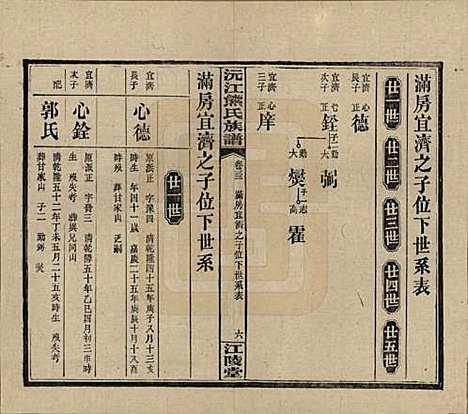 滿房宜濟之子位下世系表
廿一世
廿二世
廿三世
廿四世
廿五世
宜濟長子
正心德
宜濟次子
正心銓
子二
勤大弼
勤大熨
子志高霍
宜濟三子
正心庠
沅江熊氏族譜
卷三
滿房宜濟之子位下世系表
六
江陵堂
滿房宜濟之子位下世系
廿二世
宜濟長子
心德
原派正 字豫四 清乾隆四十五年庚子八月十三亥
時生 年四十一歲 嘉慶二十五年庚辰十月十八亥
時殁 葬甘家山 乏嗣
宜濟次子
心銓
原派正 字晉三 清乾隆五十年乙巳四月初三申時
生 殁失考 葬與兄同山
配
郭氏
清乾隆五十二年丁未五月二十五亥時生 殁失考
葬甘家山 子二 勤弼 熨